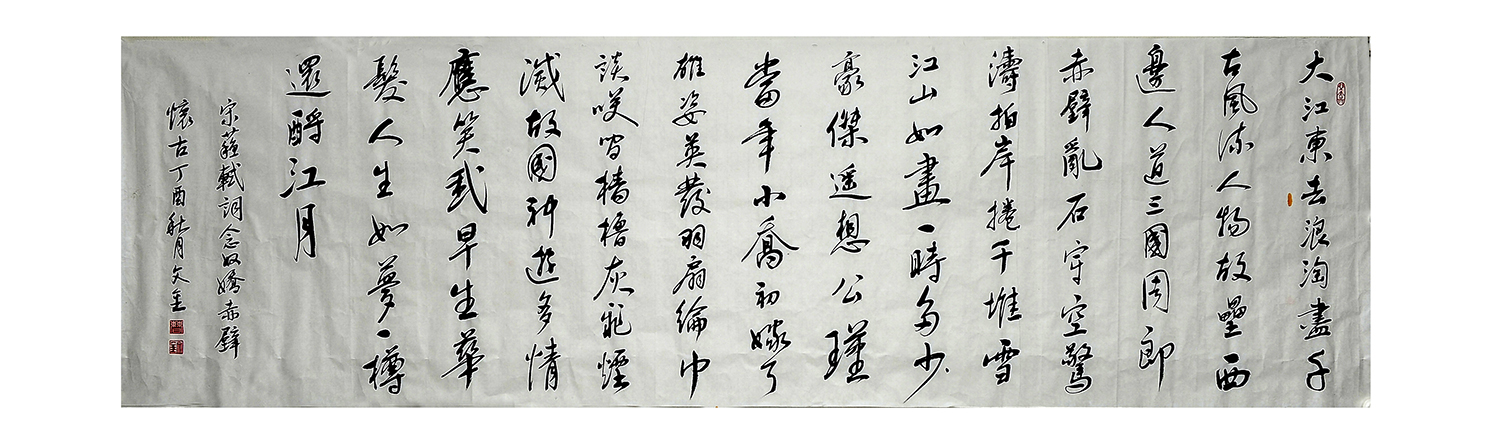 大江東去浪淘盡千
古風流人物故壘西
邊人道三國周郎
赤壁亂石穿空驚
濤拍岸捲千堆雪
江山如畫一時多少
豪傑遥想公瑾
當年小喬初嫁了
雄姿英發羽扇綸巾
談咲間檣櫓灰飛煙
滅故國神遊多情
應笑我早生華
髮人生如夢一樽
還酹江月
宋蘇軾詞念奴嬌赤壁
懷古丁酉秋月文金